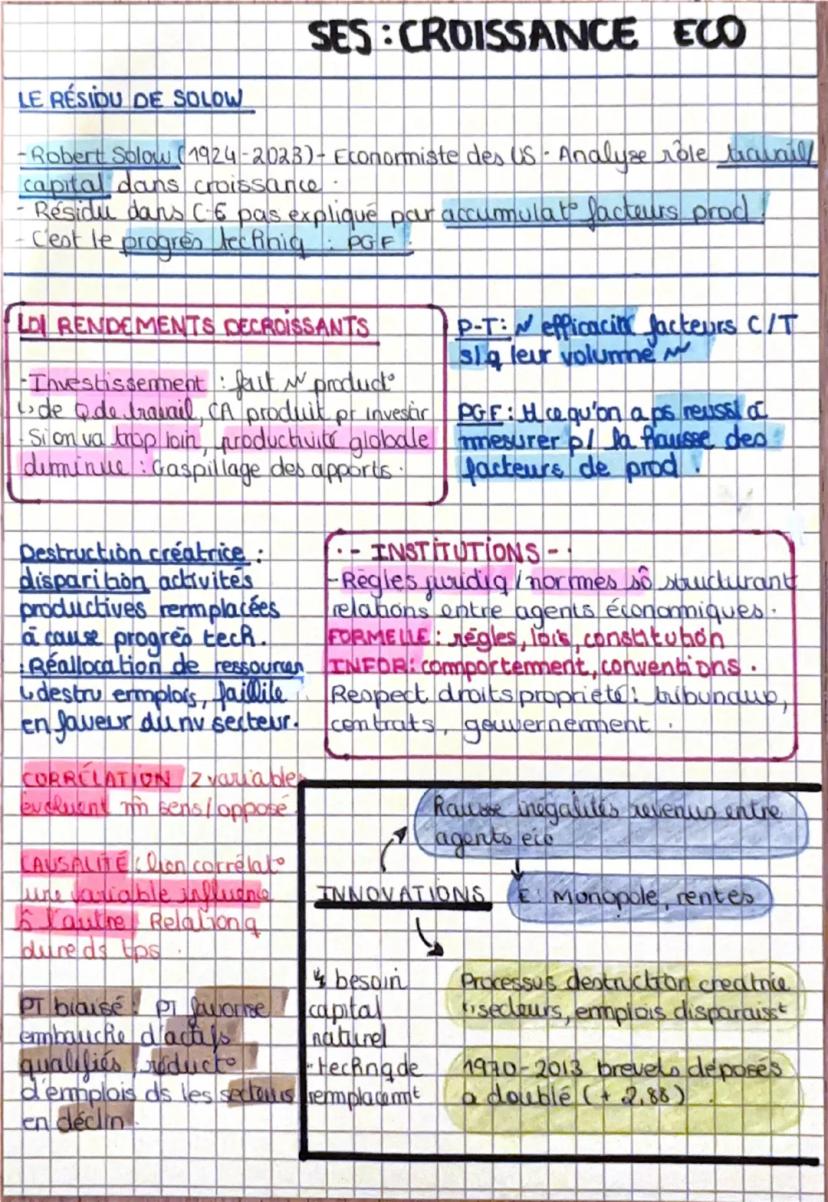 SES : CROISSANCE ECO
LE RÉSIDU DE SOLOW
- Robert Solow (1924-2023) - Economiste des US - Analyse rôle travail/
capital dans croissance.
- Résidu dans C-E pas expliqué par accumulat° facteurs prod.
- C'est le progrès techniq : PGF.
LOI RENDEMENTS DECROISSANTS
- Investissement : fait ↗ product°
↳ de Q de travail, CA produit pr investir
- Si on va trop loin, productivité globale
diminue : Gaspillage des apports.
P-T : ↗ efficacité facteurs C/T
s/q leur volume ↗
PGF : tt ce qu'on a ps reussi à
mesurer p/ la hausse des
facteurs de prod.
Destruction créatrice :
disparition activités
productives remplacées
à cause progrès tech.
: Réallocation de ressources
↳ destru emplois, faillite
en faveur du nv secteur.
- INSTITUTIONS -
- Règles juridiq / normes sô structurant
relations entre agents économiques.
FORMELLE : règles, lois, constitution
INFOR : comportement, conventions.
Respect droits propriété : tribunaux,
contrats, gouvernement.
CORRÉLATION / 2 variables
évoluent m̂ sens / opposé
CAUSALITÉ : lien corrélat°
une variable influence
s/ l'autre. Relation q
dure ds tps.
PT biaisé : PT favorise
embauche d'actifs
qualifiés, réduct°
d'emplois ds les secteurs
en déclin.
Hausse inégalités revenus entre
agents eco
INNOVATIONS
E : Monopole, rentes
↯ besoin
capital
naturel
- techn q de
remplacemt
Processus destruction creatrie
↳ secteurs, emplois disparaisst
1970-2013 brevets déposés
a doublé (+ 2,88)